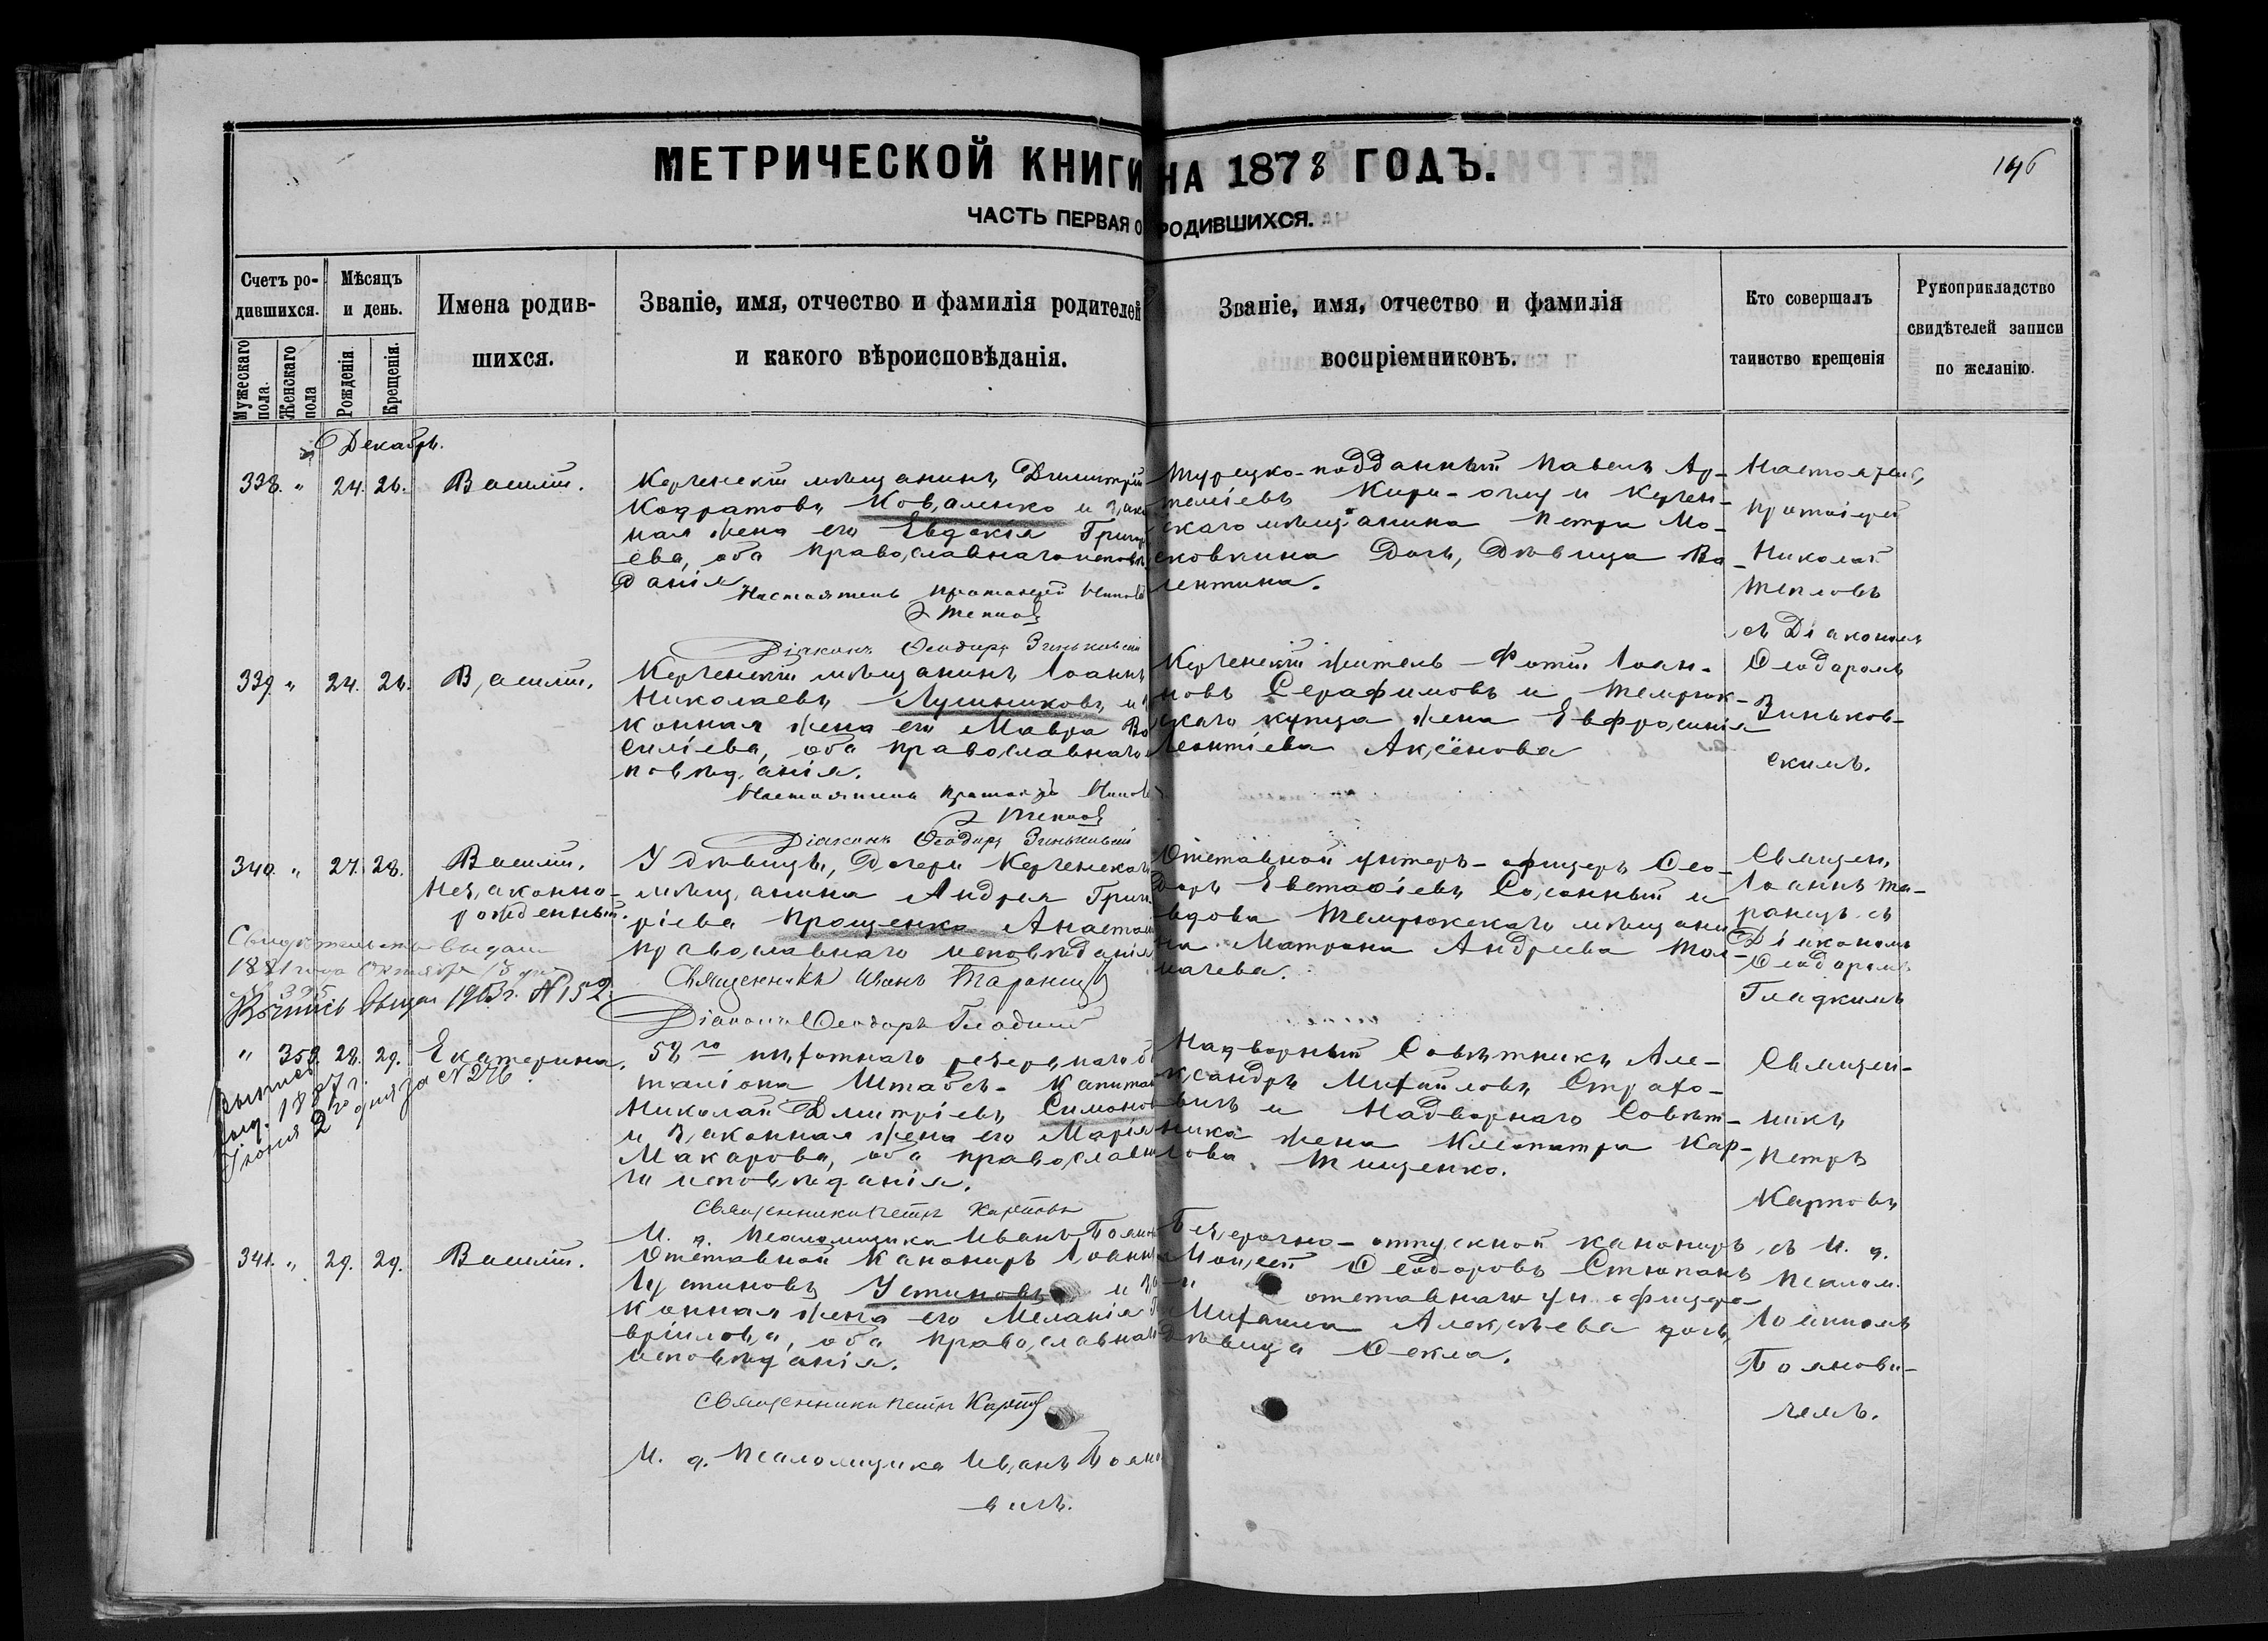 МЕТРИЧЕСКОЙ КНИГИ НА 1878 ГОДЪ.
146
ЧАСТЬ ПЕРВАЯ О РОДИВШИХСЯ.
Счетъ ро-
дившихся.
Мужескаго пола.
Женскаго пола
Мѣсяцъ
и день.
Рожденія.
Крещенія.
Имена родив-
шихся.
Званіе, имя, отчество и фамилія родителей
и какого вѣроисповѣданія.
Званіе, имя, отчество и фамилія
воспріемниковъ.
Кто совершалъ
таинство крещенія
Рукоприкладство
свидѣтелей записи
по желанію.
Декабрь.
338. " 24. 26. Василій.
Керченскій мѣщанинъ Димитрій
Кодратовъ Коваленко и зако
ная жена его Евдокія Григор
ева, оба православнаго исповѣ
данія
Настоятель протоіерей Николай
Тепловъ
Діаконъ Ѳеодоръ Зиньковскій
Турецко-подданный Павелъ Ар-
теміевъ Кири-оглу и Керчен-
скаго мѣщанина Петра Мо-
сковкина дочь, дѣвица Ва-
лентина.
Настоятель,
протоіерей
Николай
Тепловъ
съ Діакономъ
Ѳеодоромъ
Зиньков-
скимъ.
339. " 24. 26. Василій.
Керченскій мѣщанинъ Іоаннъ
Николаевъ Лушниковъ и
конная жена его Мавра Ва
силіева, оба православнаго
повѣданія.
Настоятель протоіерей Николай
Тепловъ
Діаконъ Ѳеодоръ Зиньковскій
Керченскій житель Фотій Іоан-
новъ Серафимовъ и Темрюк-
скаго купца жена Евфросинія
Леонтіева Аксёнова
340. " 27. 28. Василій.
Незаконно-
рожденный.
Свидѣтельство выдано
1881 года Октября 13 дня
№ 395
Выпись выдан 1903 г. № 152.
У дѣвицы, дочери Керченскаго
мѣщанина Андрея Григо
ріева Прощенко Анастасіи
православнаго исповѣданія
Священникъ Иоанъ Таранецъ
Діаконъ Ѳеодоръ Гладкий
Отставной унтеръ-офицеръ Ѳео-
доръ Евстаѳіевъ Солонный и
вдова Темрюкскаго мѣщани
на Матрона Андреева Тол-
мачева.
Священ.
Іоаннъ Та-
ранецъ съ
Діакономъ
Ѳеодоромъ
Гладкимъ
" 359. 28. 29. Екатерина.
Выпись
выд. 1887 г.
Іюня 2го дня за № 276.
52го пѣхотнаго резервнаго б
таліона Штабсъ-Капитан
Николай Дмитріевъ Симонов
и законная жена его Марія
Макарова, оба православн
го исповѣданія.
Священникъ Петръ Карповъ
И. д. Псаломщика Иванъ Боянов
Надворный Совѣтникъ Але-
ксандръ Михайловъ Страхо-
вичъ и Надворнаго Совѣт-
ника жена Клеопатра Кар-
пова Тищенко.
Священ-
никъ
Петръ
Карповъ
съ И. д.
псалом.
Іоанномъ
Боянови-
чемъ.
341. " 29. 29. Василій.
Отставной Канониръ Іоаннъ
Іустиновъ Устиновъ и за
конная жена его Меланія Га
вріилова, оба православнаго
исповѣданія.
Священникъ Петръ Карповъ
И. д. Псаломщика Иванъ Бояно
вичъ.
Безсрочно-отпускной канониръ
Моисей Ѳеодоровъ Стюпанъ
и отставнаго ун. офицера
Михаила Алексѣева дочь,
дѣвица Ѳекла.